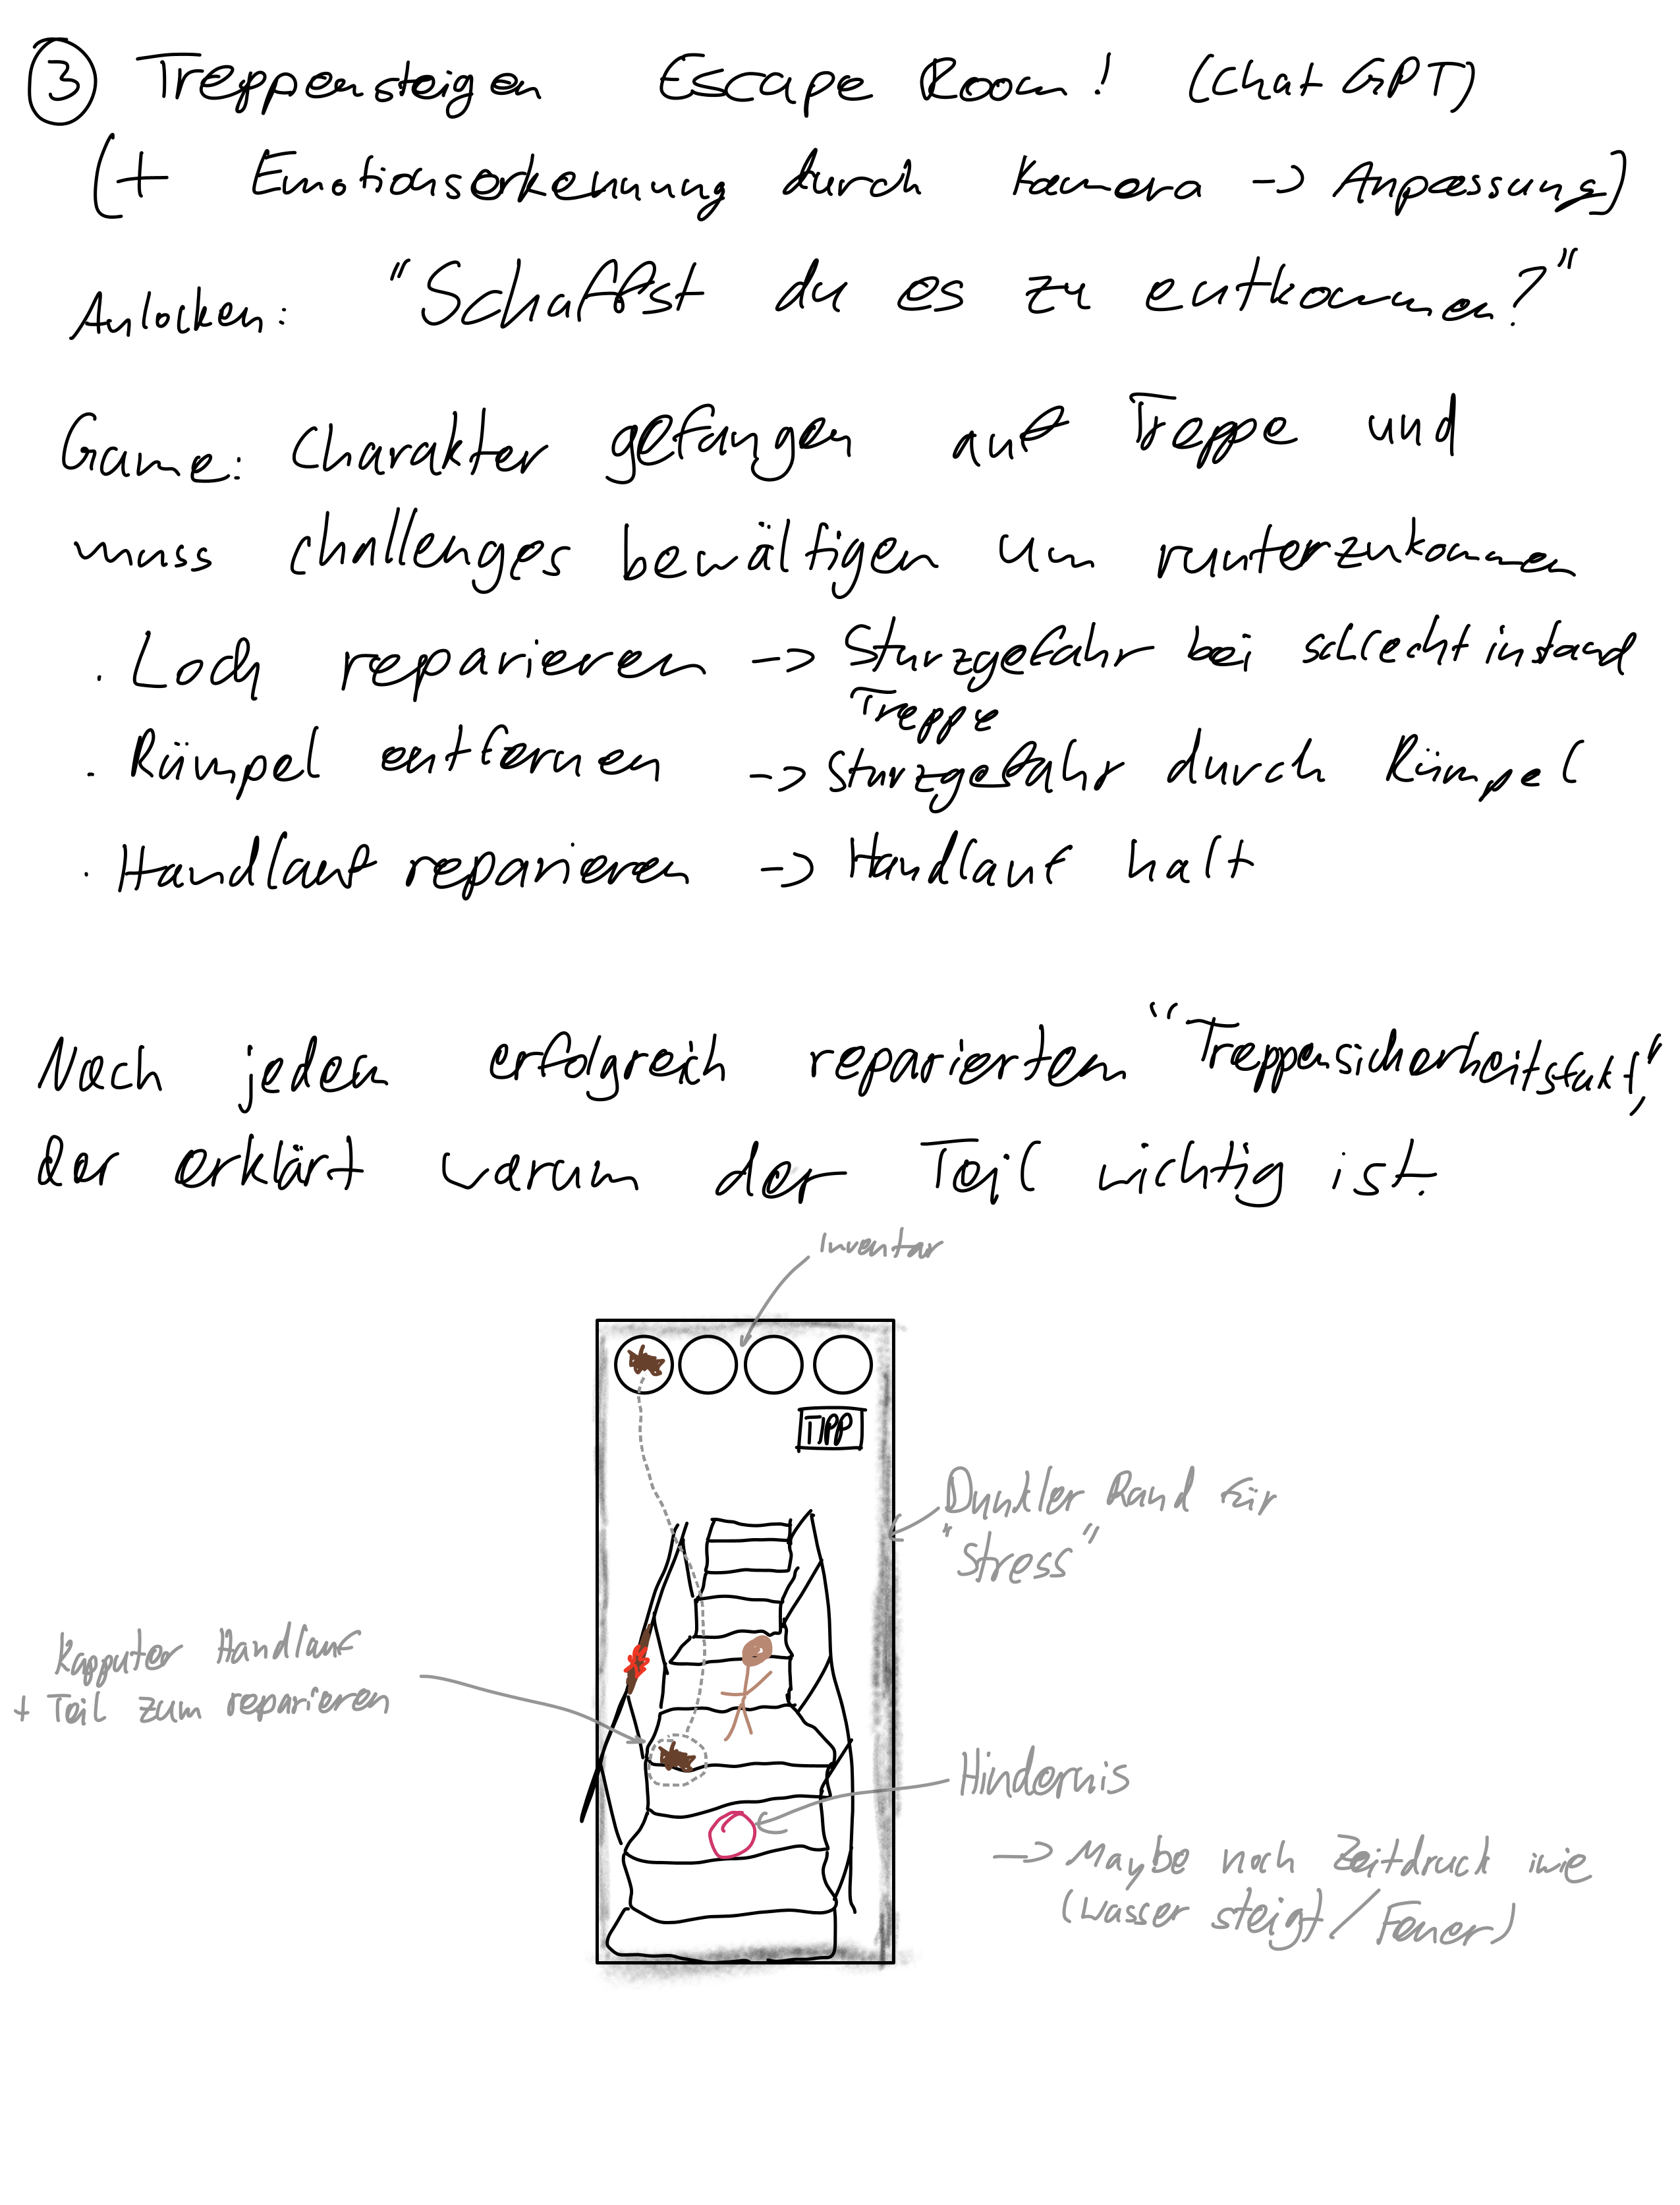 3 Treppensteigen Escape Room! (ChatGPT)
(+ Emotionserkennung durch Kamera -> Anpassung)
Anlocken: "Schaffst du es zu entkommen?"
Game: Charakter gefangen auf Treppe und
muss challenges bewältigen um runterzukommen
· Loch reparieren -> Sturzgefahr bei schlecht instand
Treppe
· Rümpel entfernen -> Sturzgefahr durch Rümpel
· Handlauf reparieren -> Handlauf halt
Nach jedem erfolgreich repariertem "Treppensicherheitsfakt",
der erklärt warum der Teil wichtig ist.
Inventar
TIPP
Dunkler Rand für
"Stress"
Kapputer Handlauf
+ Teil zum reparieren
Hindernis
-> Maybe noch Zeitdruck wie
(Wasser steigt/Feuer)